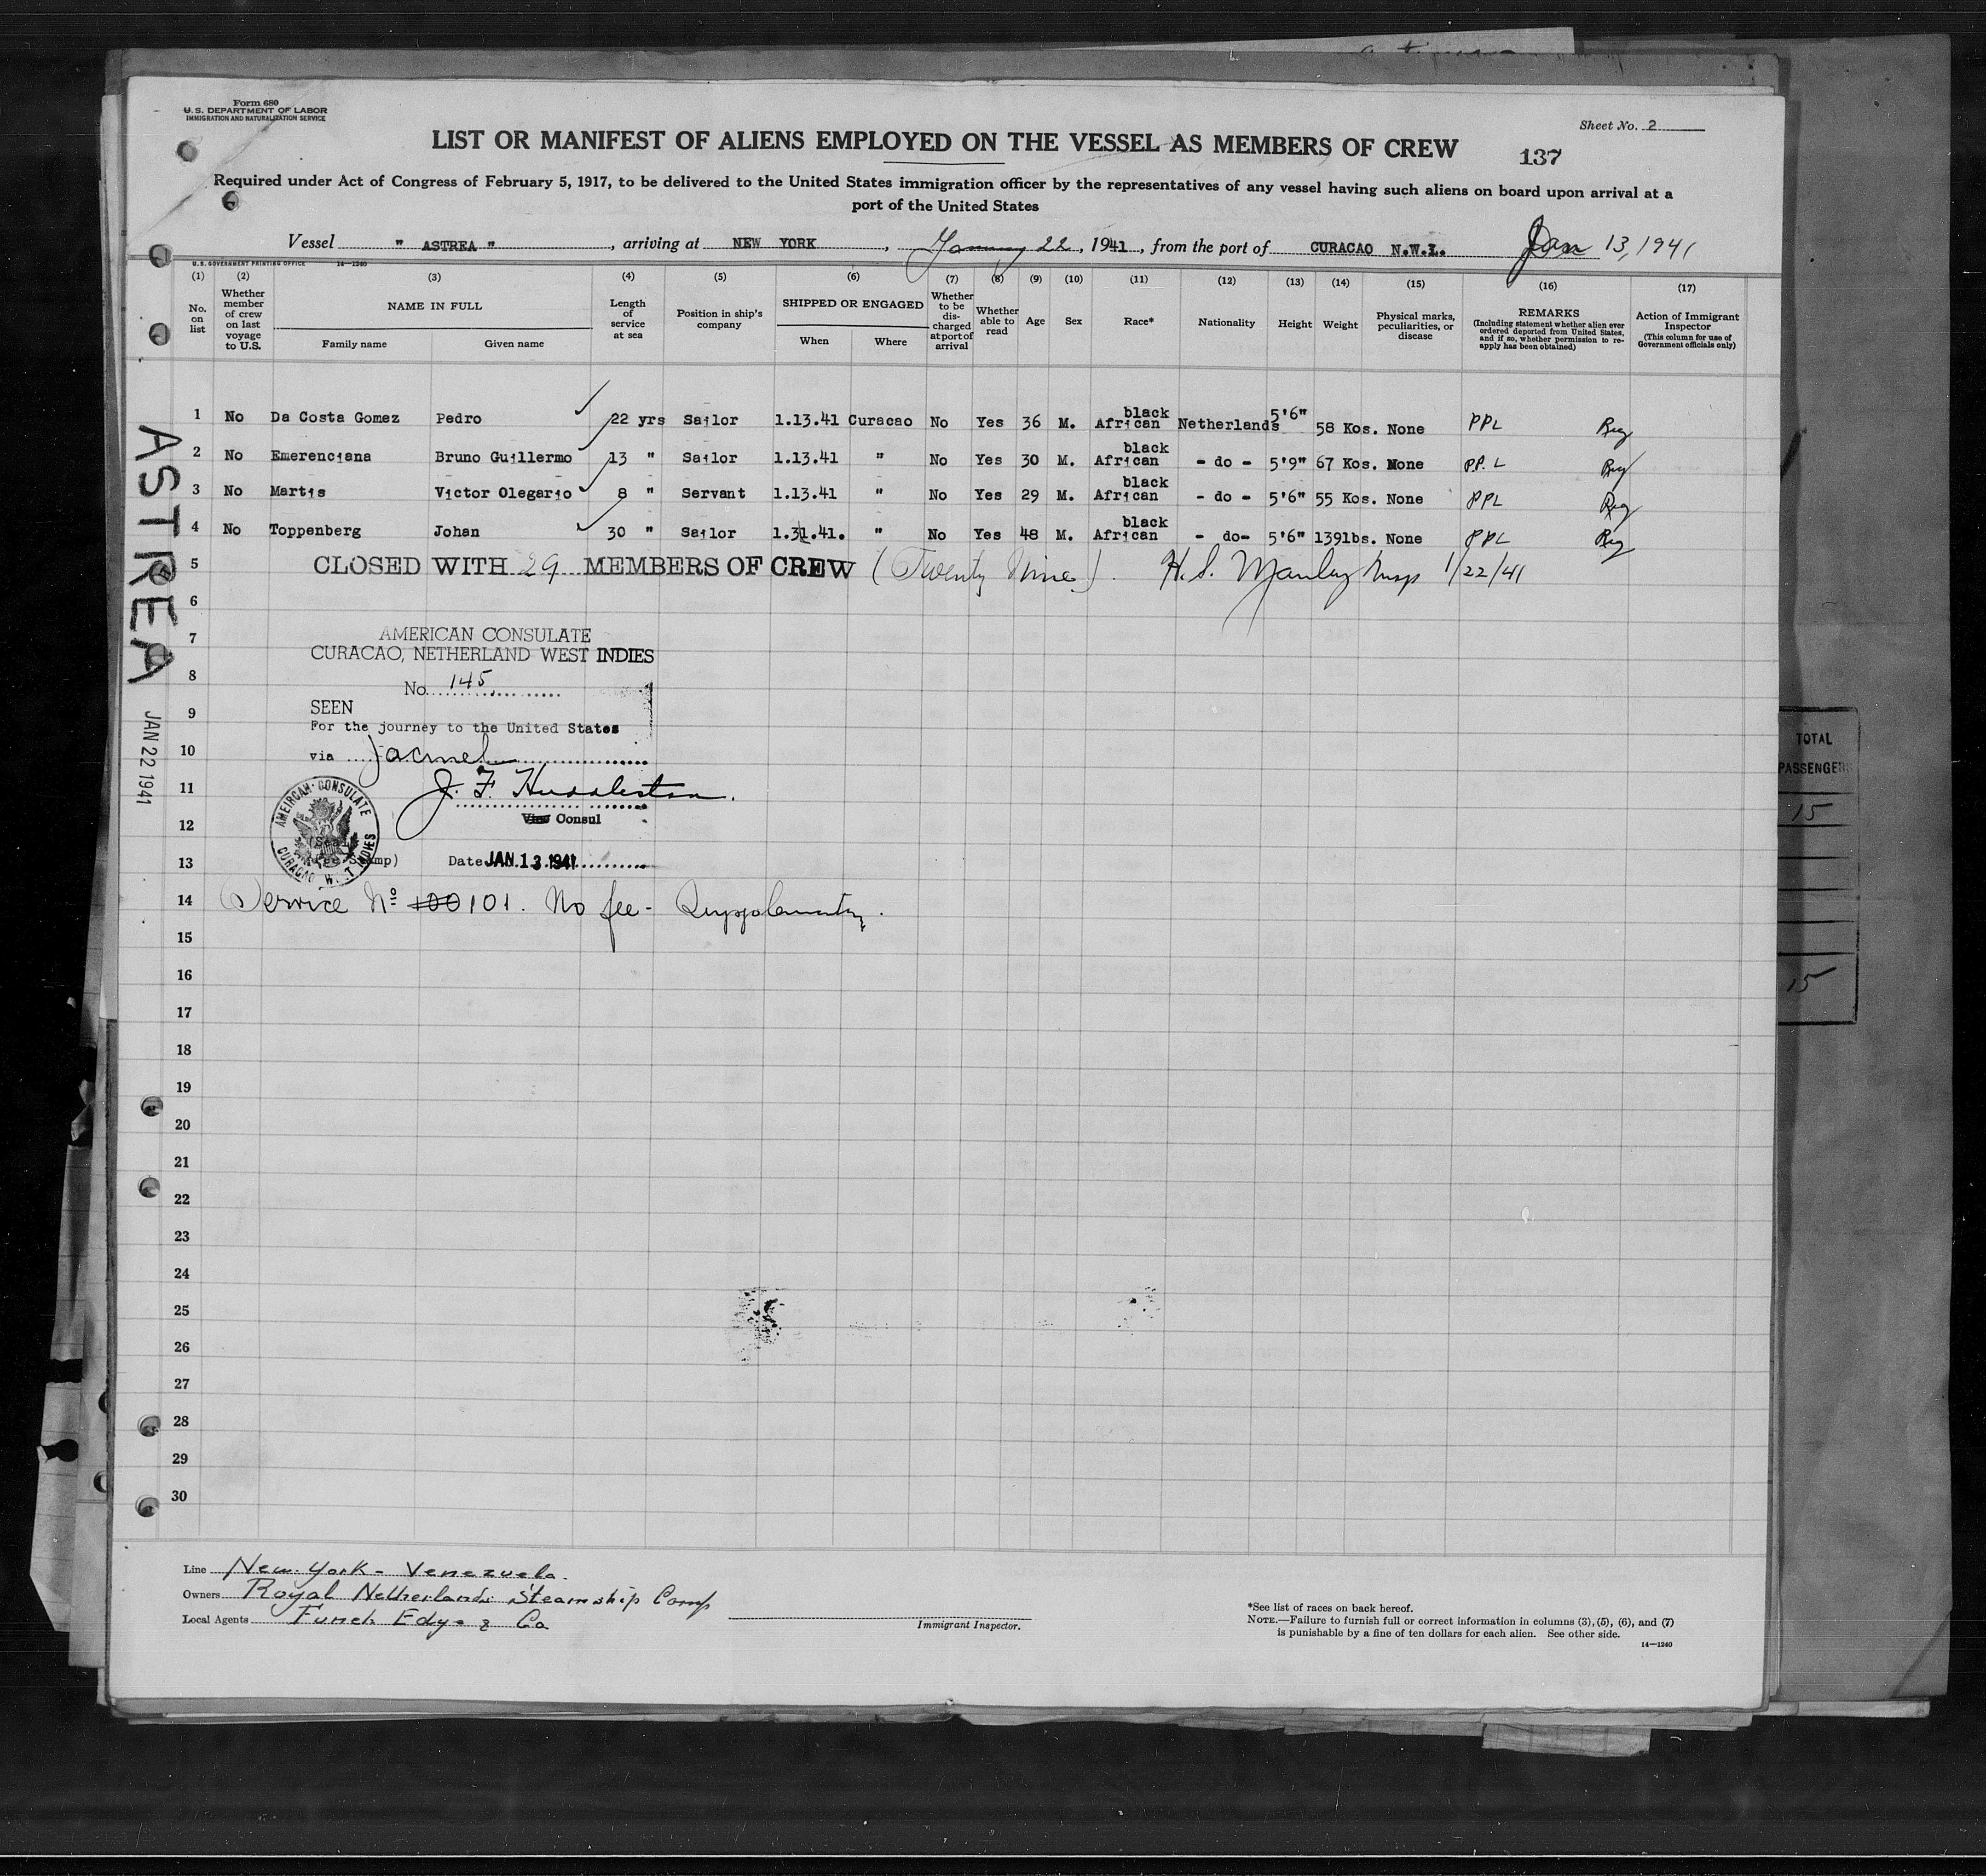 Form 680
U.S. DEPARTMENT OF LABOR
IMMIGRATION AND NATURALIZATION SERVICE
Sheet No. 2
LIST OR MANIFEST OF ALIENS EMPLOYED ON THE VESSEL AS MEMBERS OF CREW
137
Required under Act of Congress of February 5, 1917, to be delivered to the United States immigration officer by the representatives of any vessel having such aliens on board upon arrival at a
port of the United States
Vessel " ASTREA ", arriving at NEW YORK, January 22, 1941, from the port of CURACAO N.W.I. Jan 13, 1941
U. S. GOVERNMENT PRINTING OFFICE 14—1240
(1) No. on list
(2) Whether member of crew on last voyage to U.S.
(3) NAME IN FULL
Family name Given name
(4) Length of service at sea
(5) Position in ship's company
(6) SHIPPED OR ENGAGED
When Where
(7) Whether to be discharged at port of arrival
(8) Whether able to read
(9) Age
(10) Sex
(11) Race*
(12) Nationality
(13) Height
(14) Weight
(15) Physical marks, peculiarities, or disease
(16) REMARKS
(Including statement whether alien ever ordered deported from United States, and if so, whether permission to re-apply has been obtained)
(17) Action of Immigrant Inspector
(This column for use of Government officials only)
1 No Da Costa Gomez Pedro 22 yrs Sailor 1.13.41 Curacao No Yes 36 M. African black Netherlands 5'6" 58 Kos. None PPL
2 No Emerenciana Bruno Guillermo 13 " Sailor 1.13.41 " No Yes 30 M. African black - do - 5'9" 67 Kos. None P.P.L
3 No Martis Victor Olegario 8 " Servant 1.13.41 " No Yes 29 M. African black - do - 5'6" 55 Kos. None PPL
4 No Toppenberg Johan 30 " Sailor 1.31.41. " No Yes 48 M. African black - do- 5'6" 139lbs. None PPL
5 CLOSED WITH 29 MEMBERS OF CREW (Twenty Nine). H.S. Manley Insp 1/22/41
6
7
AMERICAN CONSULATE
CURACAO, NETHERLAND WEST INDIES
8
No. 145
9
SEEN
For the journey to the United States
10
via Jacmel
11
J. F. Huddleston.
12
Vice Consul
AMEIRCAN CONSULATE
CURACAO W. T INDIES
13
Date JAN. 13 1941
14 Service No 100 101. No fee - Supplementary.
15
16
17
18
19
20
21
22
23
24
25
26
27
28
29
30
ASTREA
JAN 22 1941
TOTAL
PASSENGERS
15
15
Line New York - Venezuela.
Owners Royal Netherlands Steamship Comp
Local Agents Funch Edye & Co
Immigrant Inspector.
*See list of races on back hereof.
NOTE.—Failure to furnish full or correct information in columns (3), (5), (6), and (7)
is punishable by a fine of ten dollars for each alien. See other side.
14—1240